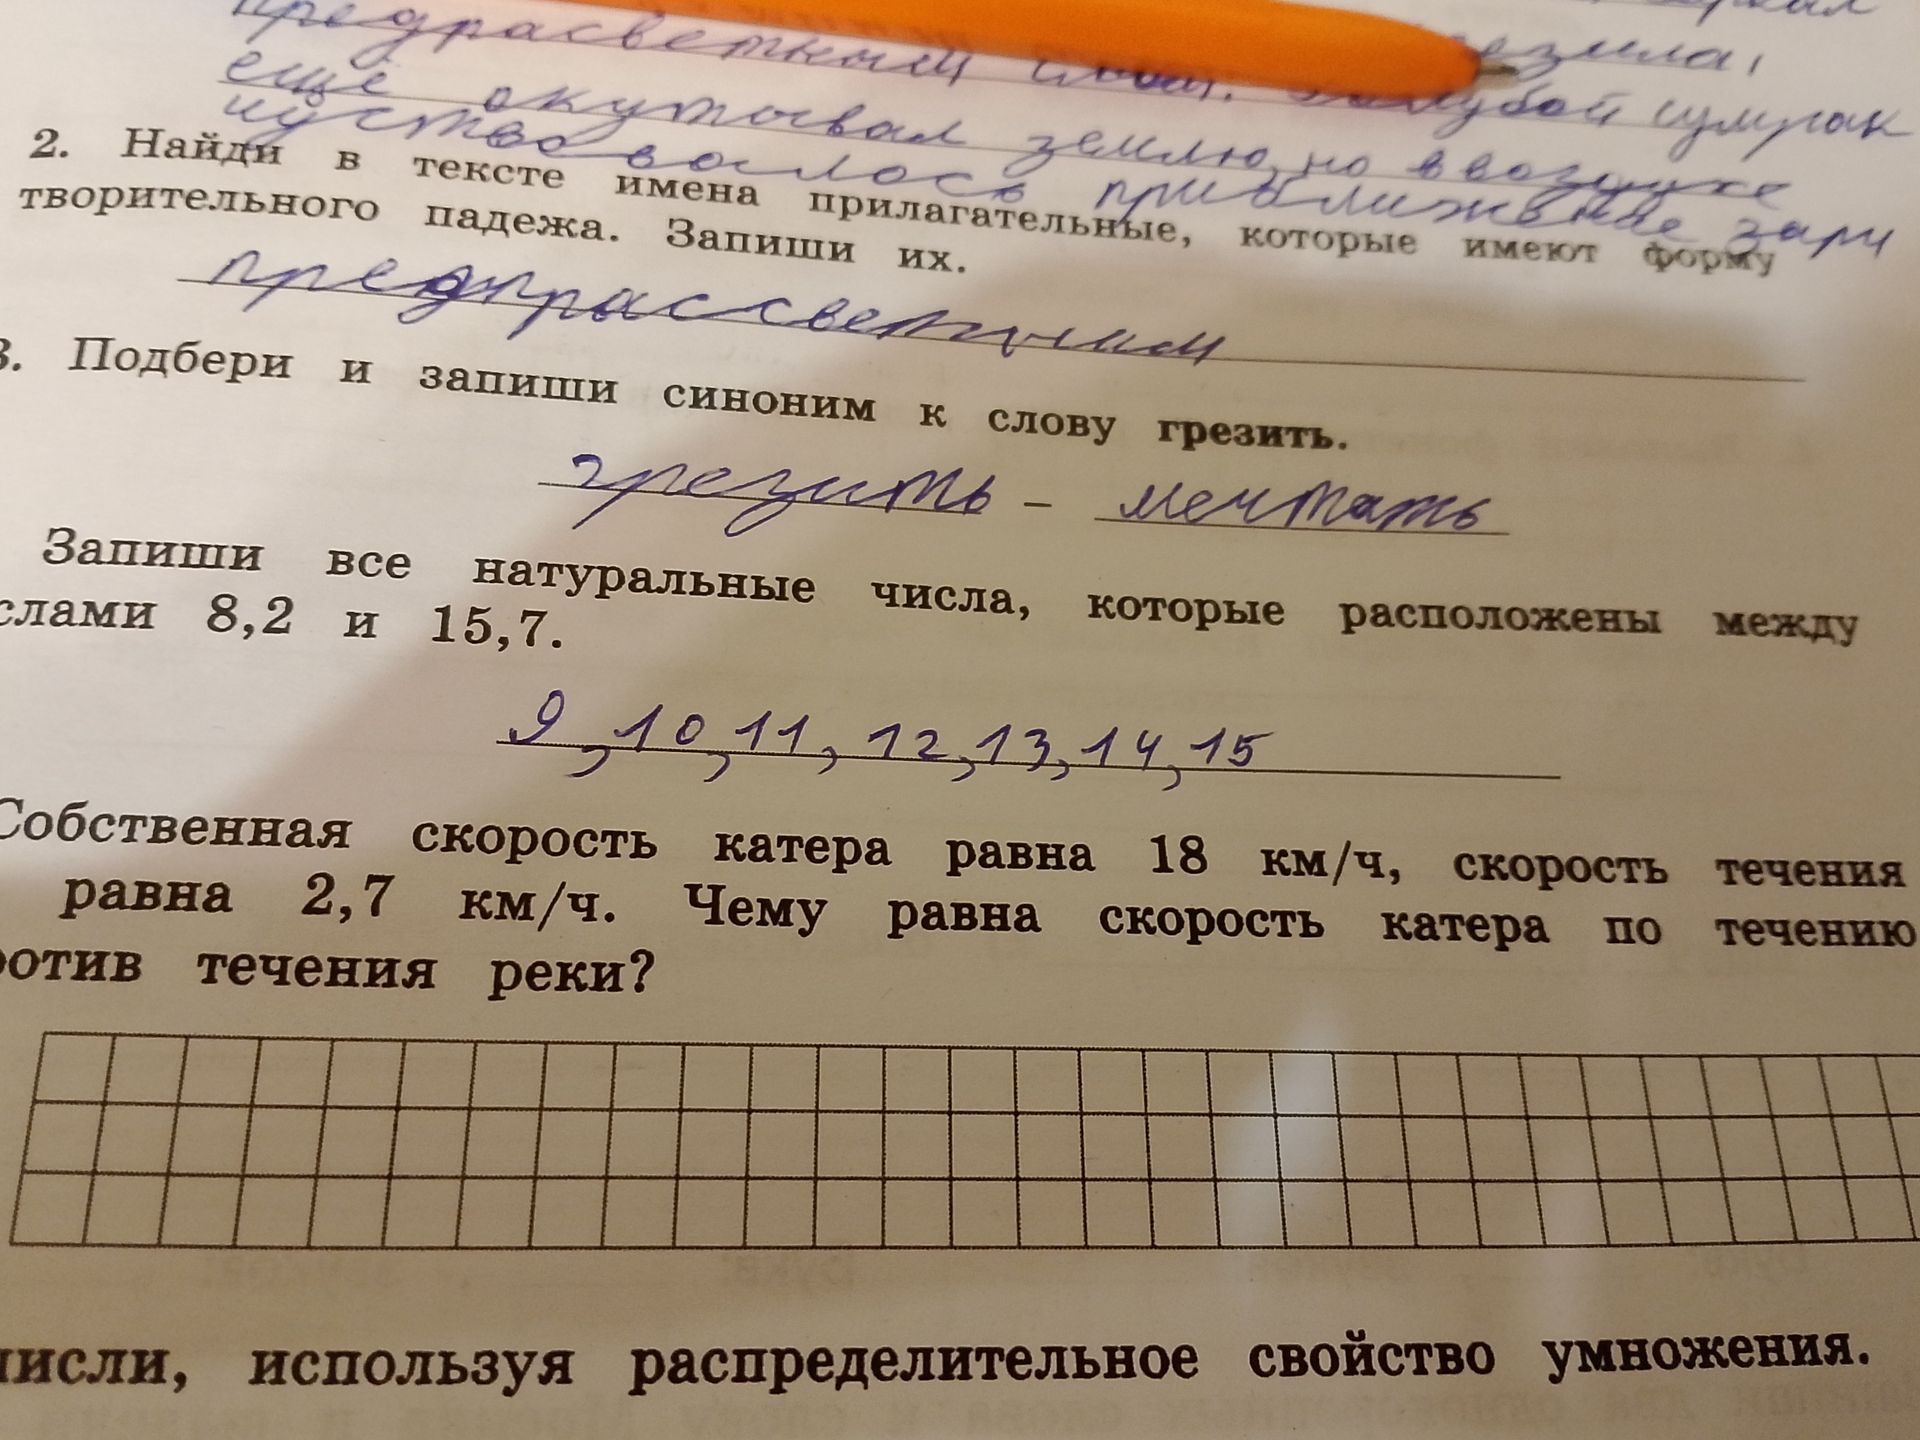 предрасветный
ещё окутывал землю, но в воздухе
чувствовалось приближение зари
2. Найди в тексте имена прилагательные, которые имеют форму
творительного падежа. Запиши их.
предрассветным
3. Подбери и запиши синоним к слову грезить.
грезить – мечтать
Запиши все натуральные числа, которые расположены между
слами 8,2 и 15,7.
9, 10, 11, 12, 13, 14, 15
Собственная скорость катера равна 18 км/ч, скорость течения
равна 2,7 км/ч. Чему равна скорость катера по течению
ротив течения реки?
числи, используя распределительное свойство умножения.